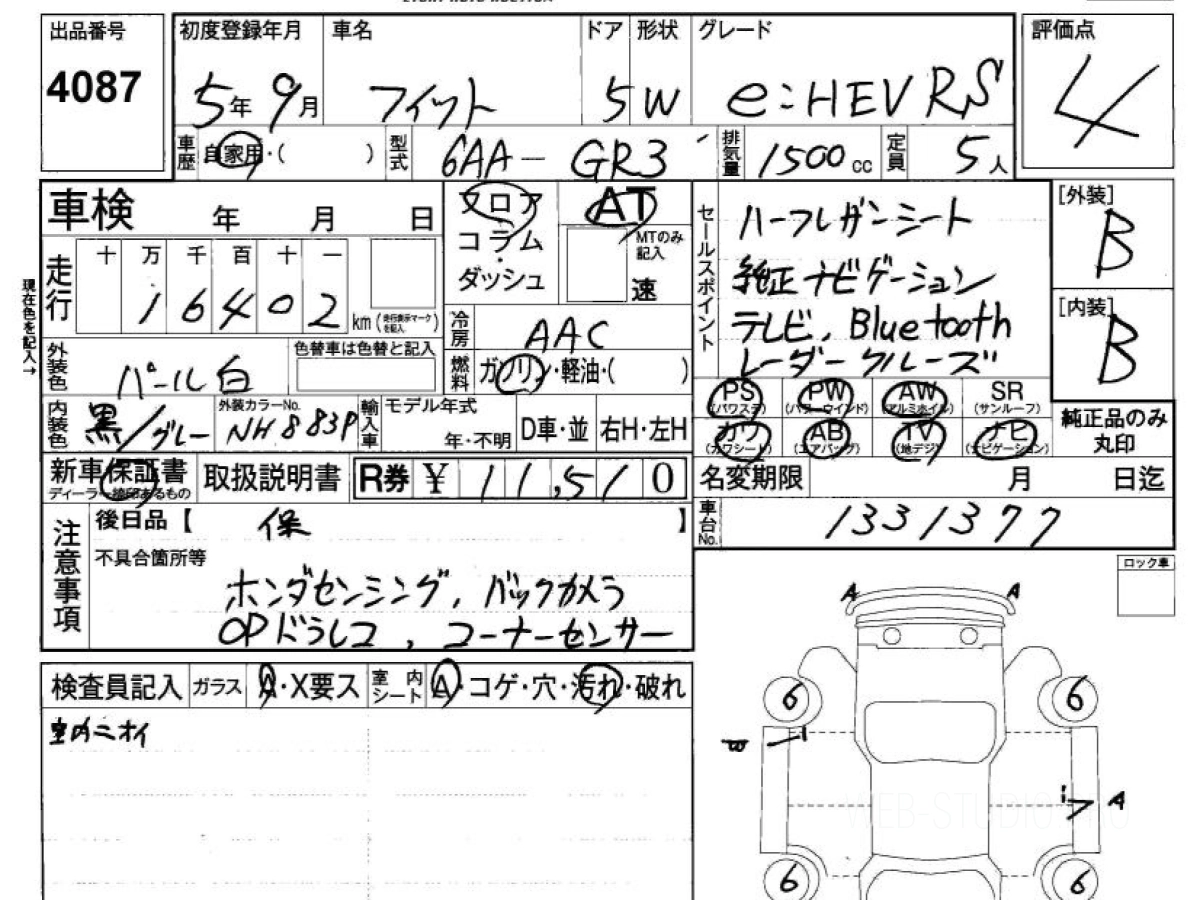 出品番号
4087
初度登録年月
5年9月
車名
フィット
ドア 形状
5 W
グレード
e:HEV RS
評価点
4
車歴 自家用・( )
型式 6AA-GR3
排気量 1500cc
定員 5人
車検 年 月 日
フロア
コラム
・
ダッシュ
AT
MTのみ
記入
速
セールスポイント
ハーフレザーシート
純正ナビゲーション
テレビ, Bluetooth
レーダークルーズ
[外装]
B
[内装]
B
現在色を記入→
走行
十 万 千 百 十 一
1 6 4 0 2
km (走行表示マークを記入)
冷房 AAC
燃料 ガソリン・軽油・( )
外装色 パール白
色替車は色替と記入
内装色 黒/グレー
外装カラーNo.
NH883P
輸入車
モデル年式
年・不明
D車・並
右H・左H
PS
(パワステ)
PW
(パワーウインド)
AW
(アルミホイル)
SR
(サンルーフ)
カワ
(カワシート)
AB
(エアバッグ)
TV
(地デジ)
ナビ
(ナビゲーション)
純正品のみ
丸印
新車保証書
ディーラー捺印あるもの
取扱説明書
R券 ¥ 11,510
名変期限 月 日迄
車台No. 1331377
注意事項
後日品【 保 】
不具合箇所等
ホンダセンシング, バックカメラ
OPドラレコ, コーナーセンサー
ロック車
検査員記入
ガラス A・X要ス
室内シート A・コゲ・穴・汚れ・破れ
室内ニオイ
A A
6 6
W i
i A
6 6
WEB-STUDIO.PRO